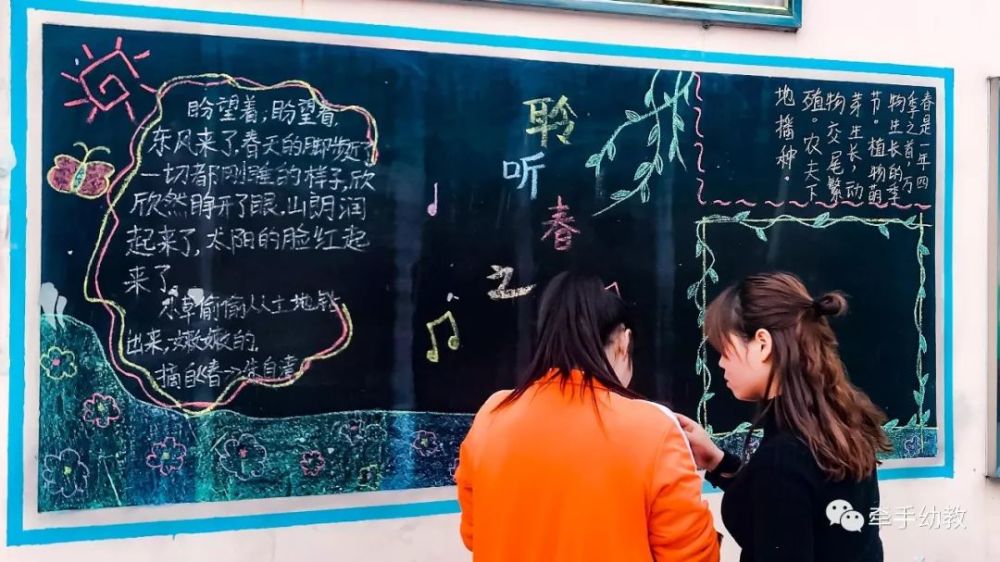 盼望着,盼望着,
东风来了,春天的脚步近了
一切都刚睡的样子,欣
欣然睁开了眼.山朗润
起来了,太阳的脸红起
来了。
小草偷偷从土地钻
出来,嫩嫩的,
摘自《春》→朱自清
聆
听
春
之
春是一年四
季之首,万
物生长的季
节。植物萌
芽生长,动
物交尾繁
殖。农夫下
地播种。
牵手幼教